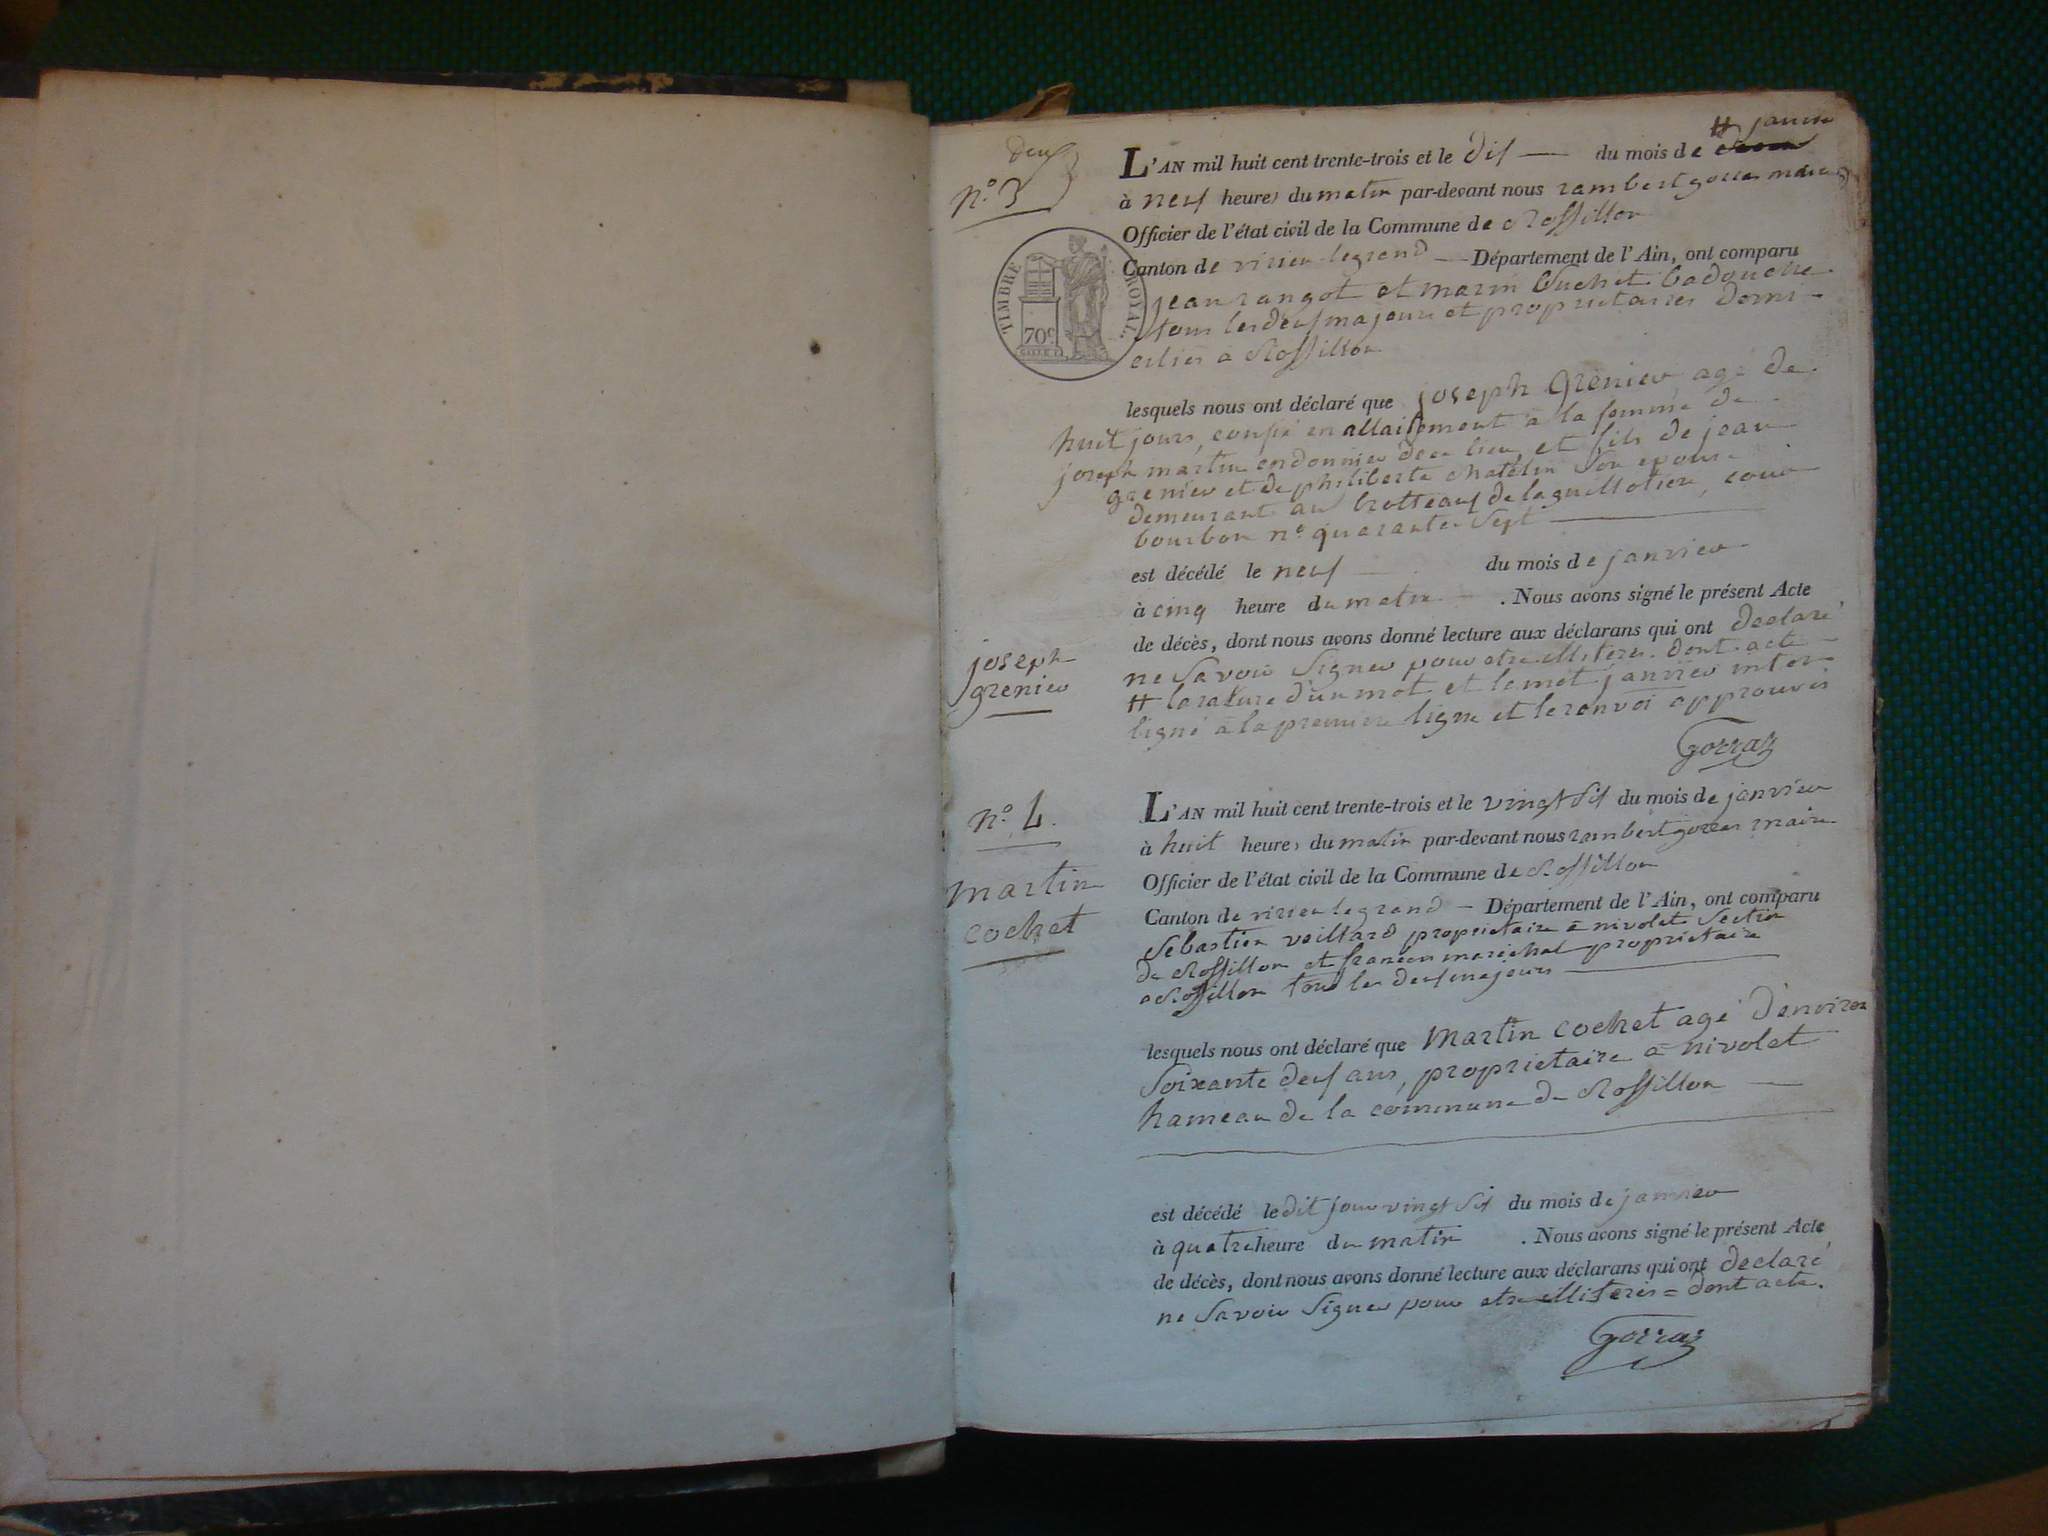 deux
n.° 3
# janvier
L'AN mil huit cent trente-trois et le dix du mois de
à neuf heures du matin par-devant nous rambert gorraz maire
Officier de l'état civil de la Commune de Rossillon
Canton de virieu legrand Département de l'Ain, ont comparu
TIMBRE ROYAL
70c
jean rangot et marin buchet
tous les deux majeurs et propriétaires domi-
ciliés à Rossillon
lesquels nous ont déclaré que joseph Grenier agé de
huit jours, confié en allaitement à la femme de
joseph martin cordonnier de ce lieu, et fils de jean
grenier et de philiberte chatelin son epouse
demeurant aux brotteaux de la guillotiere, cour
bourbon n.° quarante sept
est décédé le neuf du mois de janvier
à cinq heure du matin . Nous avons signé le présent Acte
de décès, dont nous avons donné lecture aux déclarans qui ont declaré
joseph
grenier
ne savoir signer pour etre illiteres. dont acte
# la rature d'un mot et le mot janvier inter-
ligné à la premiere ligne et le renvoi approuvés
Gorraz
n.° 4.
martin
cochet
L'AN mil huit cent trente-trois et le vingt six du mois de janvier
à huit heures du matin par-devant nous rambert gorraz maire
Officier de l'état civil de la Commune de Rossillon
Canton de virieu legrand Département de l'Ain, ont comparu
Sebastien veillard proprietaire à nivolet section
de Rossillon et françois marechal proprietaire
a Rossillon tous les deux majeurs
lesquels nous ont déclaré que Martin cochet agé d'environ
soixante deux ans, proprietaire à nivolet
hameau de la commune de Rossillon
est décédé le dit jour vingt six du mois de janvier
à quatre heure du matin . Nous avons signé le présent Acte
de décès, dont nous avons donné lecture aux déclarans qui ont declaré
ne savoir signer pour etre illiteres = dont acte.
Gorraz